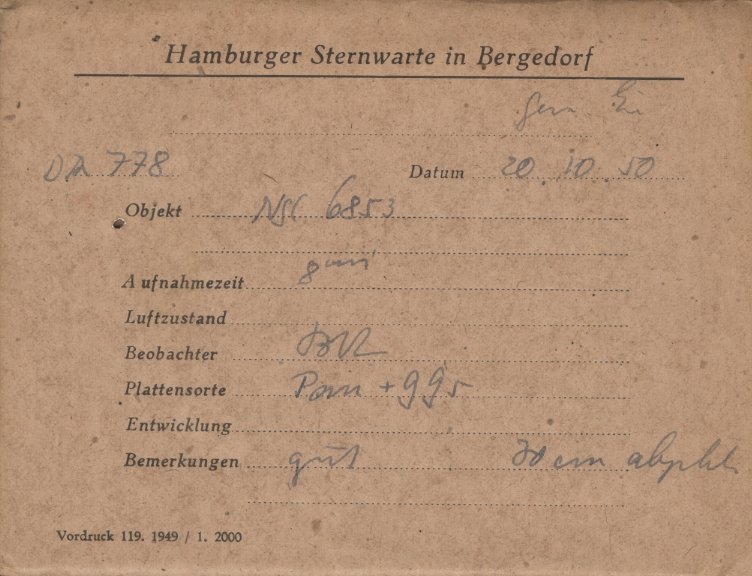 Hamburger Sternwarte in Bergedorf
gem.
DR 778 Datum 20.10.50
Objekt NGC 6853
Aufnahmezeit 8 min
Luftzustand
Beobachter
Plattensorte Pan + GG5
Entwicklung
Bemerkungen gut 30 cm
Vordruck 119. 1949 / 1. 2000